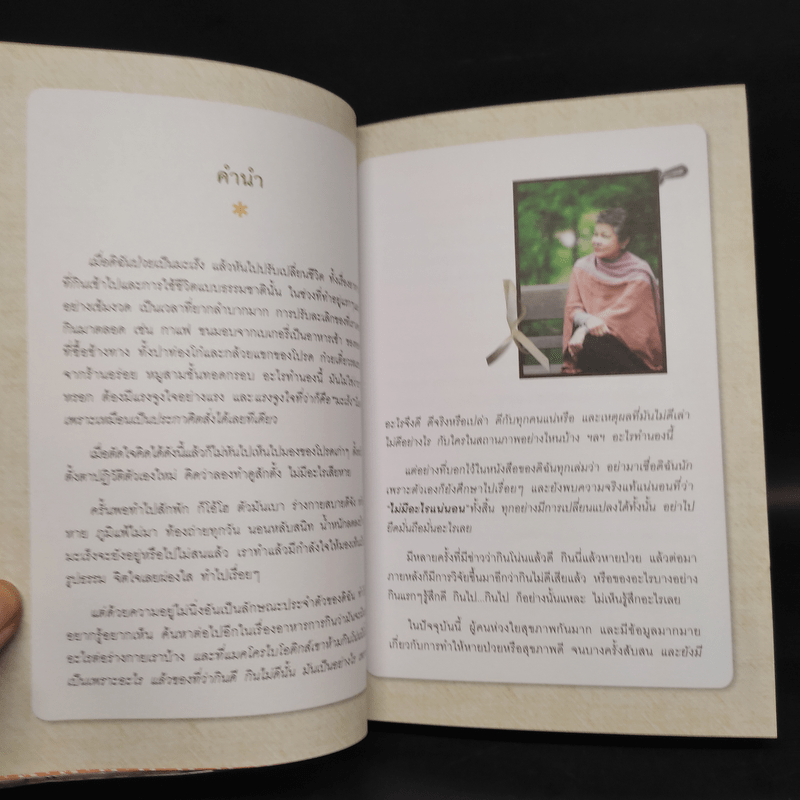 คำนำ
เมื่อดิฉันป่วยเป็นมะเร็ง แล้วหันไปปรับเปลี่ยนชีวิต ทั้งเรื่อง
ที่กินเข้าไปและการใช้ชีวิตแบบธรรมชาตินั้น ในช่วงที่ทำอยู่
อย่างเข้มงวด เป็นเวลาที่ยากลำบากมาก การปรับละเลิกของ
กินมาตลอด เช่น กาแฟ ขนมอบจากเบเกอรี่เป็นอาหารเช้า
ที่ซื้อข้างทาง ทั้งปาท่องโก๋และกล้วยแขกของโปรด ก๋วยเตี๋ยว
จากร้านอร่อย หมูสามชั้นทอดกรอบ อะไรทำนองนี้ มัน
หรอก ต้องมีแรงจูงใจอย่างแรง และแรงจูงใจที่ว่าก็คือ
เพราะเหมือนเป็นประกาศิตสั่งได้เลยทีเดียว
เมื่อตัดใจคิดได้ดังนี้แล้วก็ไม่หันไปเห็นไปมองของโปรดเก่าๆ
ตั้งตาปฏิวัติตัวเองใหม่ คิดว่าลองทำดูสักตั้ง ไม่มีอะไรเสียหาย
ครั้นพอทำไปสักพัก ก็โอ้โฮ ตัวมันเบา ร่างกายสบายดีจัง
หาย ภูมิแพ้ไม่มา ท้องถ่ายทุกวัน นอนหลับสนิท น้ำหนัก
มะเร็งจะยังอยู่หรือไปไม่สนแล้ว เราทำแล้วมีกำลังใจให้มอง
รูปธรรม จิตใจเลยผ่องใส ทำไปเรื่อยๆ
แต่ด้วยความอยู่ไม่นิ่งอันเป็นลักษณะประจำตัวของดิฉัน
อยากรู้อยากเห็น ค้นหาต่อไปอีกในเรื่องอาหารการกินว่ามัน
อะไรต่อร่างกายเราบ้าง และที่แมคโครไบโอติกส์เขาห้ามกิน
เป็นเพราะอะไร แล้วของที่ว่ากินดี กินไม่ดีนั้น มันเป็นอย่างไร
อะไรจึงดี ดีจริงหรือเปล่า ดีกับทุกคนแน่หรือ และเหตุผลที่มันไม่ดีเล่า
ไม่ดีอย่างไร กับใครในสถานภาพอย่างไหนบ้าง ฯลฯ อะไรทำนองนี้
แต่อย่างที่บอกไว้ในหนังสือของดิฉันทุกเล่มว่า อย่ามาเชื่อดิฉันนัก
เพราะตัวเองก็ยังศึกษาไปเรื่อยๆ และยังพบความจริงแท้แน่นอนที่ว่า
"ไม่มีอะไรแน่นอน" ทั้งสิ้น ทุกอย่างมีการเปลี่ยนแปลงได้ทั้งนั้น อย่าไป
ยึดมั่นถือมั่นอะไรเลย
มีหลายครั้งที่มีข่าวว่ากินโน่นแล้วดี กินนี่แล้วหายป่วย แล้วต่อมา
ภายหลังก็มีการวิจัยขึ้นมาอีกว่ากินไม่ดีเสียแล้ว หรือของอะไรบางอย่าง
กินแรกๆ รู้สึกดี กินไป...กินไป ก็อย่างนั้นแหละ ไม่เห็นรู้สึกอะไรเลย
ในปัจจุบันนี้ ผู้คนห่วงใยสุขภาพกันมาก และมีข้อมูลมากมาย
เกี่ยวกับการทำให้หายป่วยหรือสุขภาพดี จนบางครั้งสับสน และยังมี